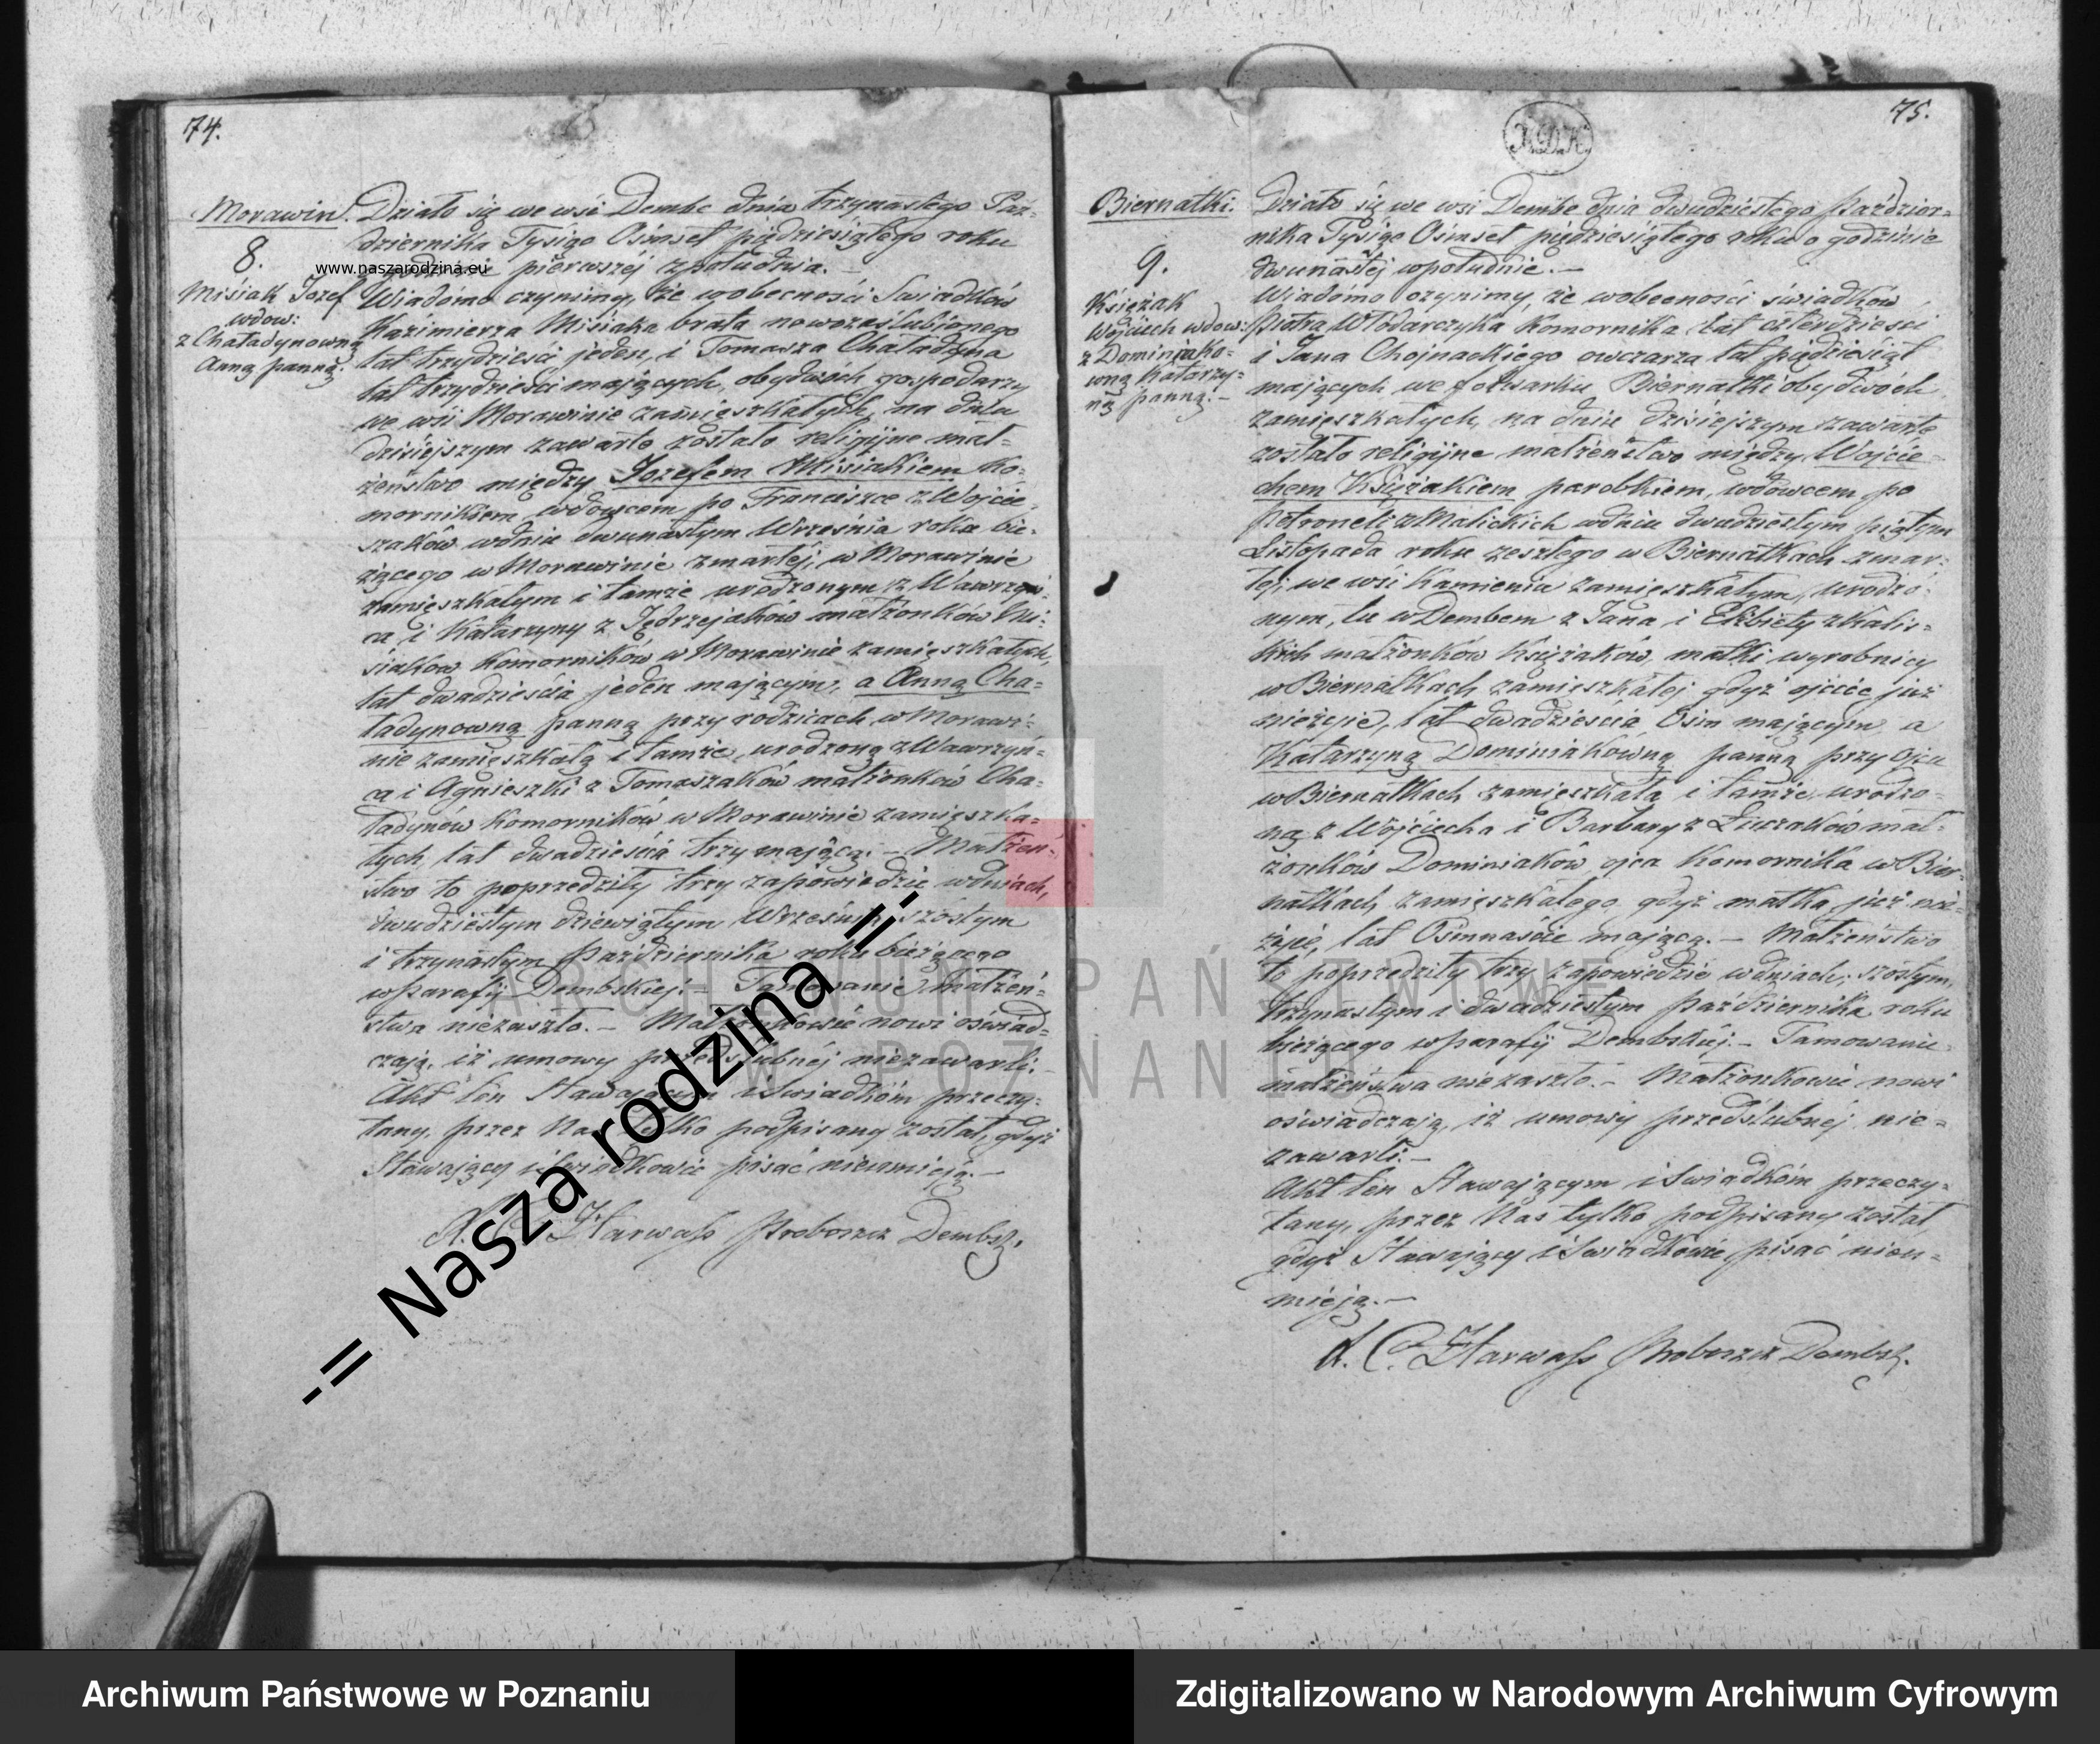 74.
Morawin.
8.
Misiak Jozef
wdow:
z Chaładynowną
Anną panną.
Działo się we wsi Dembe dnia trzynastego Paź-
dziernika Tysiąc Ośmset piędziesiątego roku
pierwszej z południa. —
Wiadomo czynimy, że wobecności Swiadków
Kazimierza Misiaka brata nowozaślubionego
lat trzydzieści jeden, i Tomasza Chaładyna
lat trzydzieści mających, obydwóch gospodarzy
we wsi Morawinie zamieszkałych, na dniu
dzisiejszym zawarte zostało religijne mał-
żeństwo między Jozefem Misiakiem Ko-
mornikiem, wdowcem po Franciszce z Wojcie-
szaków wdniu dwunastym Września roku bie-
żącego w Morawinie zmarłej, w Morawinie
zamieszkałym i tamże urodzonym z Wawrzyń-
ca i Katarzyny z Jędrzejaków małżonków Mi-
siaków Komorników w Morawinie zamieszkałych,
lat dwadzieścia jeden mającym, a Anną Cha-
ładynowną panną przy rodzicach w Morawi-
nie zamieszkałą i tamże urodzoną z Wawrzyń-
ca i Agnieszki z Tomaszaków małżonków Cha-
ładynów Komorników w Morawinie zamieszka-
łych, lat dwadzieścia trzy mającą. — Małżeń-
stwo to poprzedziły trzy zapowiedzie wdniach,
dwudziestym dziewiątym Września, szóstym
i trzynastym Października roku bieżącego
wparafij Dembskiej. — Tamowanie małżeń-
stwa niezaszło. — Małżonkowie nowi oświad-
czają, iż umowy przedślubnéj niezawarli. —
Akt ten Stawającym i Swiadkóm przeczy-
tany, przez Nas tylko podpisany został, gdyż
Stawający i Swiadkowie pisać nieumieją. —
X. C. Harwass Proboszcz Dembsk.
www.naszarodzina.eu
-= Nasza rodzina =-
75.
X.D.K.
Biernatki.
9.
Księżak
Wojciech wdow:
z Dominiako-
wną Katarzy-
ną panną. —
Działo się we wsi Dembe dnia dwudziestego Paździer-
nika Tysiąc Ośmset piędziesiątego roku o godzinie
dwunastej wpołudnie. —
Wiadomo czynimy, że wobecności świadków
Piotra Włodarczyka Komornika lat czterdzieści
i Jana Chojnackiego owczarza lat pięćdziesiąt
mających we folwarku Biernatki obydwóch
zamieszkałych, na dniu dzisiejszym zawarte
zostało religijne małżeństwo między Wojcie-
chem Księżakiem parobkiem, wdowcem po
Petroneli z Malickich wdniu dwudziestym piątym
Listopada roku zeszłego w Biernatkach zmar-
łej, we wsi Kamienia zamieszkałym, urodzo-
nym, tu w Dembem z Jana i Elżbiety z Kalis-
kich małżonków Księżaków, matki wyrobnicy
w Biernatkach zamieszkałej gdyż ojciec już
nieżyje, lat dwadzieścia Ośm mającym, a
Katarzyną Dominiakówną panną przy ojcu
w Biernatkach zamieszkałą i tamże urodzo-
ną z Wojciecha i Barbary z Łuczaków mał-
żonków Dominiaków, ojca Komornika w Bier-
natkach zamieszkałego, gdyż matka już nie-
żyje, lat Ośmnaście mającą. — Małżeństwo
to poprzedziły trzy zapowiedzie wdniach, szóstym,
trzynastym i dwudziestym Października roku
bieżącego wparafij Dembskiej. — Tamowanie
małżeństwa niezaszło. — Małżonkowie nowi
oświadczają, iż umowy przedślubnej nie-
zawarli. —
Akt ten Stawającym i Swiadkóm przeczy-
tany, przez Nas tylko podpisany został,
gdyż Stawający i Swiadkowie pisać nieu-
mieją. —
X. C. Harwass Proboszcz Dembsk.
ARCHIWUM PAŃSTWOWE
W POZNANIU
Archiwum Państwowe w Poznaniu
Zdigitalizowano w Narodowym Archiwum Cyfrowym